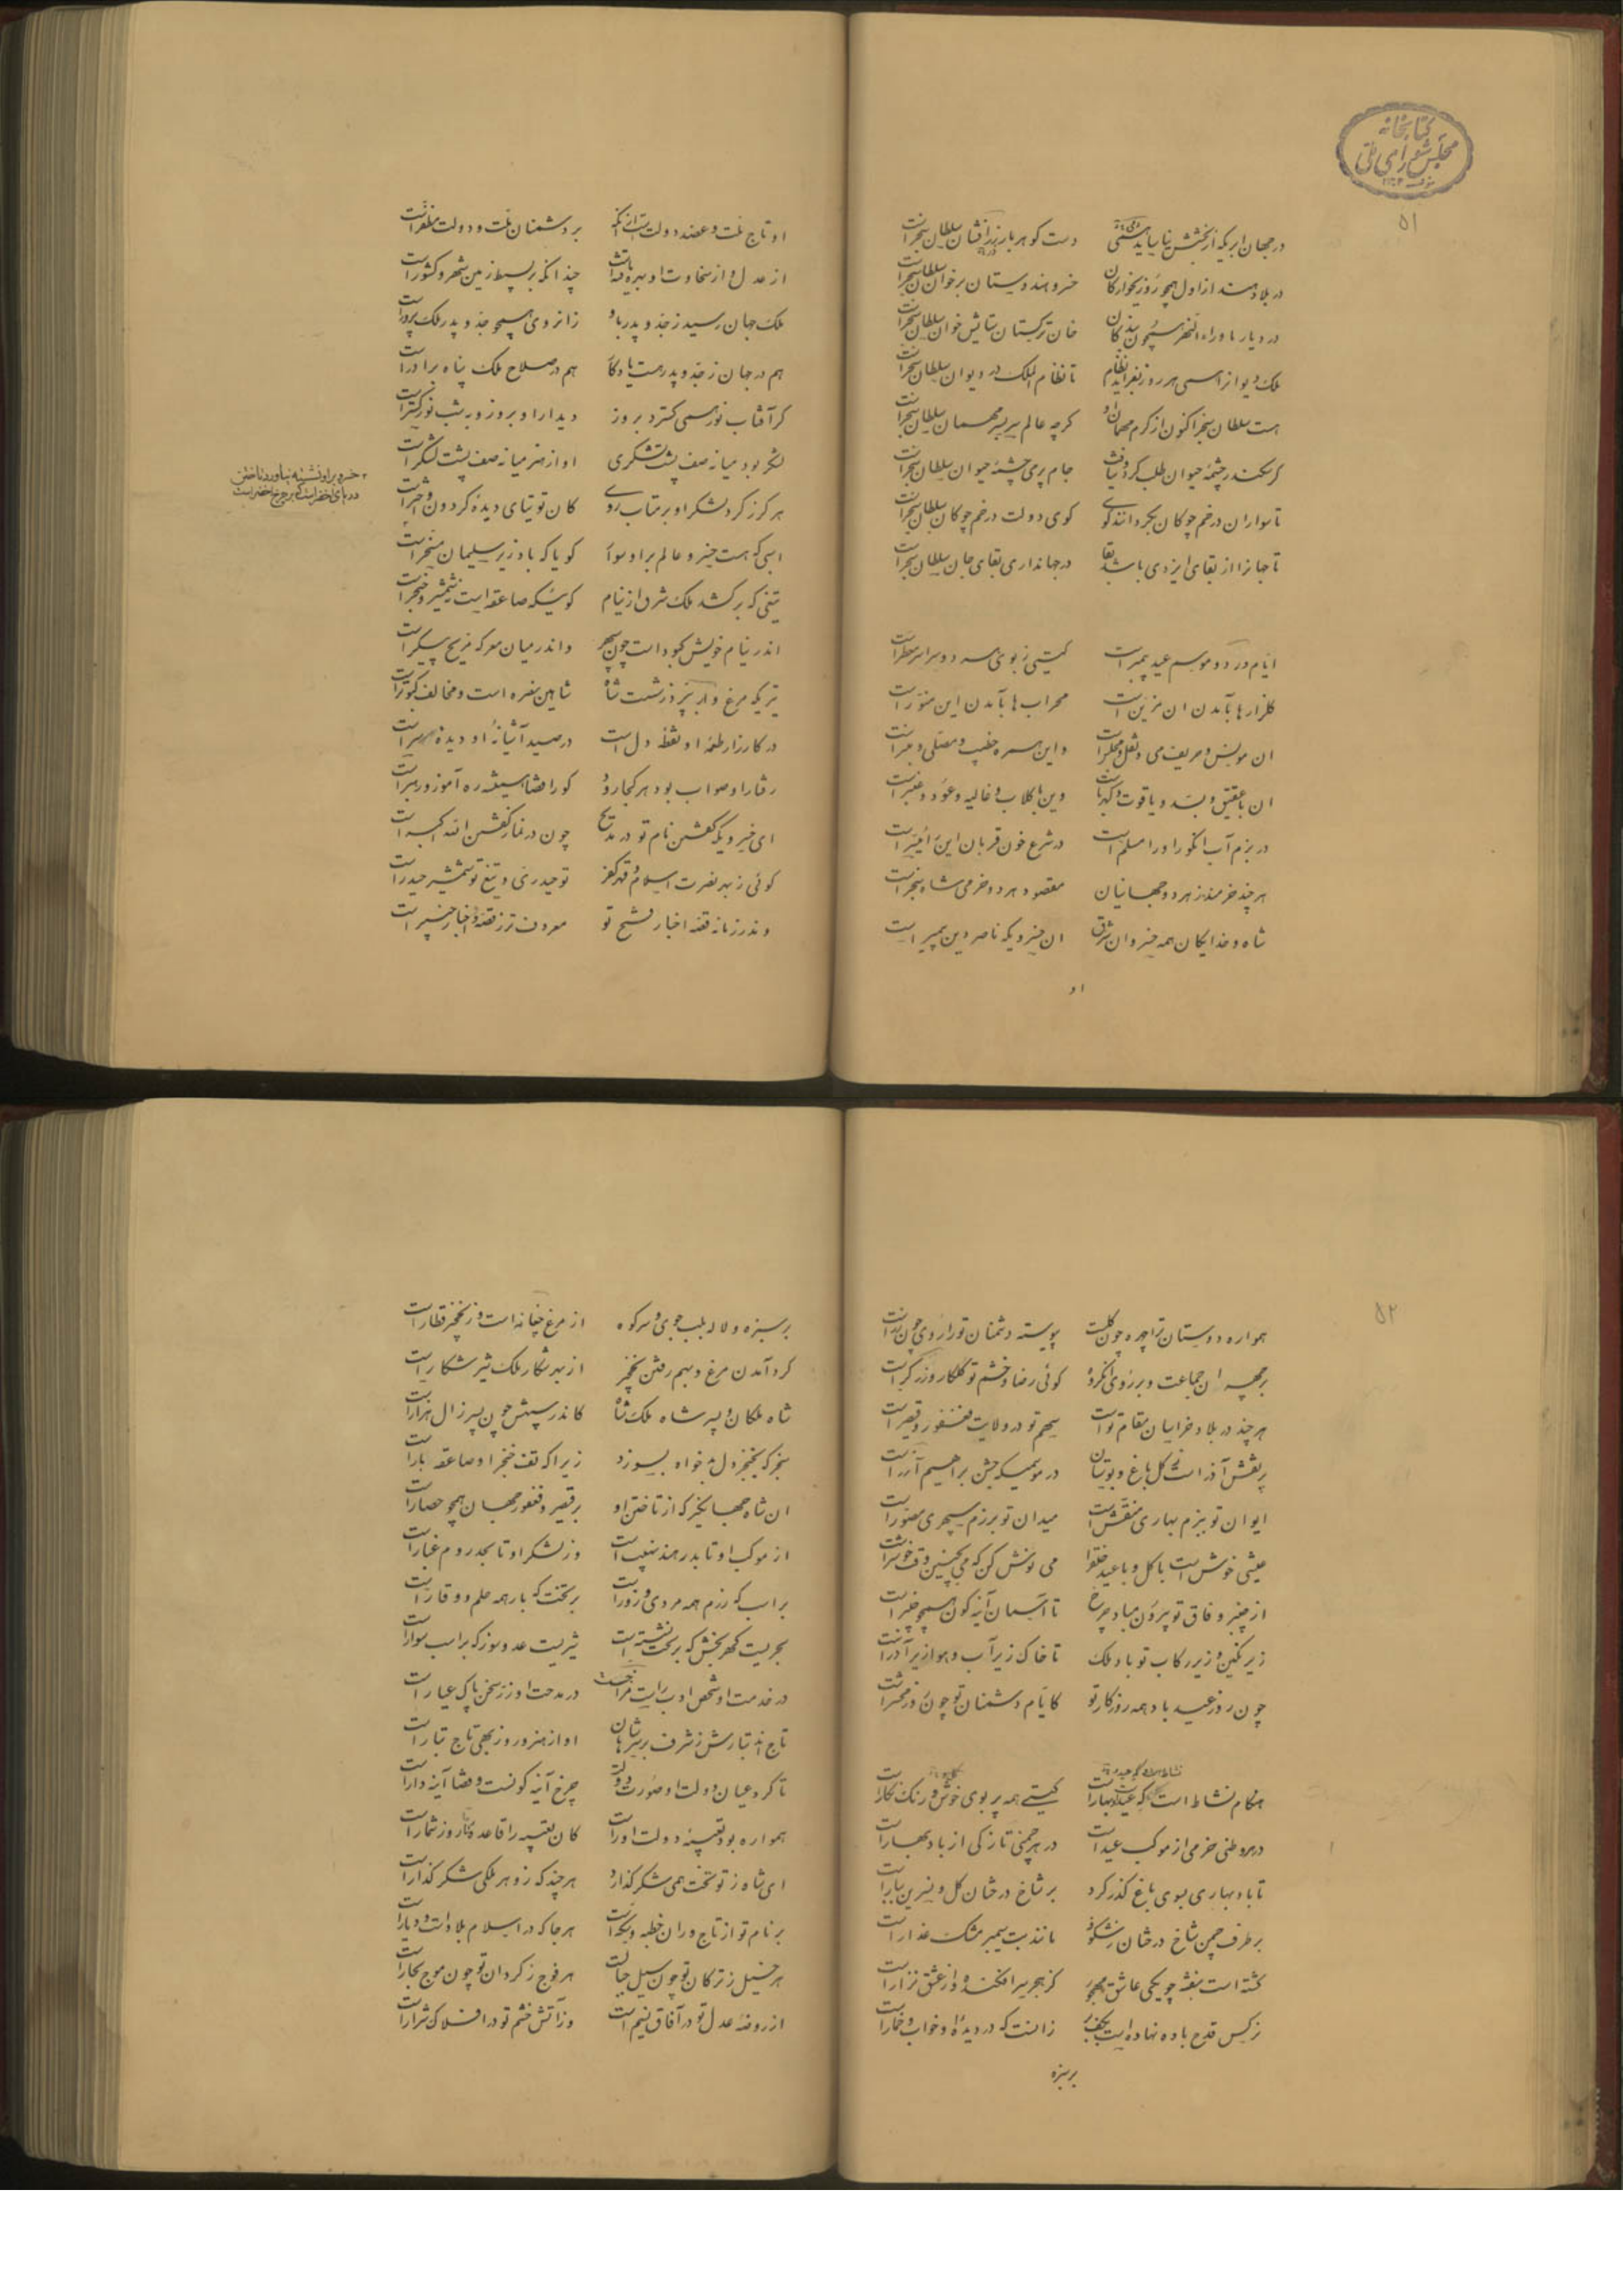 کتابخانه
مجلس شورای ملی
۵۱
در جهان ابریکه از بخشش نیاساید همی دست کوهربار زرافشان سلطان سنجر است
در بلاد هند از اول همچو روزیخوارکان خسرو هندوستان برخوان سلطان سنجر است
در دیار ماوراء النهر همچون بندکان خان ترکستان ستایش خوان سلطان سنجر است
ملک و دیوان را همی هر روز بفزاید نظام تا نظام الملک در دیوان سلطان سنجر است
هست سلطان سنجر اکنون از کرم مهمان او کرچه عالم سربسر مهمان سلطان سنجر است
کر سکندر چشمه حیوان طلب کرد و نیافت جام پر می چشمه حیوان سلطان سنجر است
تا سواران در خم چوکان بکردانند کوی کوی دولت در خم چوکان سلطان سنجر است
تا جهانرا از بقای ایزدی باشد بقا در جهانداری بقای جان سلطان سنجر است
ایام ورد و موسم عید پیمبر است کیتی ز بوی هر دو سراسر معطر است
کلزارها بآمدن ان مزین است محراب ها بآمدن این منور است
ان مونس و حریف می و نقل و مجلس است واین همره خطیب و مصلی و منبر است
ان با عقیق و بسد و یاقوت و کهرباست وین با کلاب و غالیه و عود و عنبر است
در بزم آب انکور او را مسلم است در شرع خون قربان این را میسر است
هر چند خرمند ز هر دو جهانیان مقصود هر دو خرمی شاه سنجر است
شاه و خدایکان همه خسروان شرق ان خسرویکه ناصر دین پیمبر است
او
او تاج ملت و عضد دولت است از انکه بر دشمنان ملت و دولت مظفر است
از عدل و از سخاوت او بهره یافته است چندانکه بر بسیط زمین شهر و کشور است
ملک جهان رسید ز جد و پدر باو زانروی همچو جد و پدر ملک پرور است
هم در جهان ز جد و پدر هست یادکار هم در صلاح ملک پناه برادر است
کر آفتاب نور همی کسترد بروز دیدار او بروز و بشب نور کستر است
لشکر بود میانه صف پشت لشکری او از هنر میانه صف پشت لشکر است
هرکز ز کرد لشکر او بر متاب روی کان توتیای دیده کردون و اختر است
اسبی که هست خسرو عالم بر او سوار کویا که باد زیر سلیمان مسخر است
تیغی که برکشد ملک شرق از نیام کوئیکه صاعقه است نه شمشیر و خنجر است
اندر نیام خویش کبود است چون سپهر واندر میان معرکه مریخ پیکر است
تیریکه مرغ وار بپرد ز شست شاه شاهین سفره است و مخالف کبوتر است
در کارزار طعمه او نقطه دل است در صید آشیانه او دیده سر است
رفتار او صواب بود هر کجا رود کورا قضا همیشه ره آموز و رهبر است
ای خسرویکه کفتن نام تو در مدیح چون در نماز کفتن الله اکبر است
کوئی ز بهر نصرت اسلام و قهر کفر تو حیدری و تیغ تو شمشیر حیدر است
وندر زمانه قصه اخبار فتح تو معروف تر ز قصه و اخبار خیبر است
خسرو بر او نشسته بناورد تاختن
دریای اخضر است که بر چرخ اخضر است
۵۲
همواره دوستان ترا چهره چون کلست پیوسته دشمنان تورا روی چون زر است
بر چهره ان جماعت و بر روی انکروه کوئی رضا و خشم تو کلکار و زرکر است
هر چند در بلاد خراسان مقام تو است سهم تو در ولایت فغفور و قیصر است
پر نقش آذر است ز کل باغ و بوستان در موسمیکه جشن براهیم آزر است
ایوان تو ببزم بهاری منقش است میدان تو برزم سپهری مصور است
عیشی خوش است با کل و با عید می نوش کن که می بچنین وقت خوشتر است
از چنبر وفاق تو بیرون مباد چرخ تا آسمان آینه کون همچو چنبر است
زیر نکین و زیر رکاب تو باد ملک تا خاک زیر آب و هوا زیر آذر است
چون روز عید باد همه روزکار تو کایام دشمنان تو چون روز محشر است
هنکام نشاط است که عید و بهار است کیتی همه پر بوی خوش و رنک نکار است
در هر وطنی خرمی از موکب عید است در هر چمنی تازکی از باد بهار است
تا باد بهاری بسوی باغ کذر کرد بر شاخ درختان کل و نسرین ببار است
بر طرف چمن شاخ درختان ز شکوفه مانند بت سیمبر مشک عذار است
کشته است بنفشه چو یکی عاشق مهجور کز هجر سرافکنده و از عشق نزار است
نرکس قدح باده نهاده است بکف بر زانست که در دیده او خواب و خمار است
بر سبزه
بر سبزه و لاله بلب جوی و سر کوه از مرغ چغانه است و ز نخجیر قطار است
کرد آمدن مرغ و بهم رفتن نخجیر از بهر شکار ملک شیر شکار است
شاه ملکان و پسر شاه ملکشاه کاندر سپهش چون پسر زال هزار است
سنجر که بخنجر دل بدخواه بسوزد زیرا که تف خنجر او صاعقه بار است
ان شاه جهانکیر که از تاختن او بر قیصر و فغفور جهان همچو حصار است
از موکب او تا بدر هند نهیب است وز لشکر او تا بحد روم غبار است
بر اسب که رزم همه مردی و زور است بر تخت که بار همه حلم و وقار است
بحریست کهر بخش که بر تخت نشسته است شیریست عدو سوز که بر اسب سوار است
در خدمت او شخص ادب راست مزاجست در مدحت او زر سخن پاک عیار است
تاج اند تبارش ز شرف بر سر شاهان او از هنر و روزبهی تاج تبار است
تا کرد عیان دولت او صورت دولت چرخ آینه کونست و قضا آینه دار است
همواره بود تعبیه دولت او راست کان تعبیه را قاعده تا روز شمار است
ای شاه ز تو تخت همی شکر کذارد هر چند که زو هر ملکی شکر کذار است
بر نام تو از تاجوران خطبه و سکه است هر جا که در اسلام بلاد است و دیار است
هر خیل ز ترکان تو چون سیل جبالست هر فوج ز کردان تو چون موج بحار است
از روضه عدل تو در آفاق نسیم است وز آتش خشم تو در افلاک شرار است